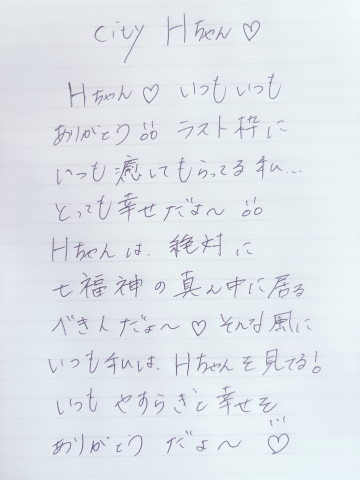 city Hちゃん♡
Hちゃん♡ いつもいつも
ありがとう ラスト枠に
いつも癒してもらってる私…
とっても幸せだよ〜
Hちゃんは、絶対に
七福神の真ん中に居る
べき人だよ〜♡そんな風に
いつも私は、Hちゃんを見てる!
いつも やすらぎと幸せを
ありがとう だよ〜♡